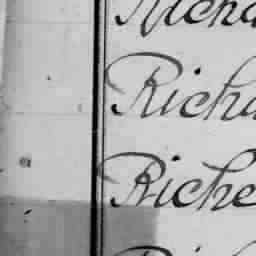 Richa
Richa
Riche